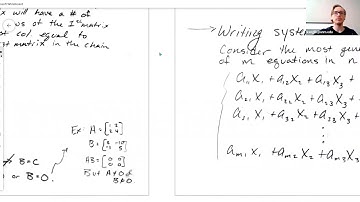 ix will have a # of
ws of the 1st matrix
st col equal to
st matrix in the chain
Ex: A =
B =
AB = [0 0
0 0]
But A ≠ 0 or
B ≠ 0.
⇏ B=C
or B=0.
→ Writing system
Consider the most gene
of m equations in n
a11 X1 + a12 X2 + a13 X3 +
a21 X1 + a22 X2 + a23 X3 +
a31 X1 + a32 X2 + a33 X3 +
⋮
am1 X1 + am2 X2 + am3 X3